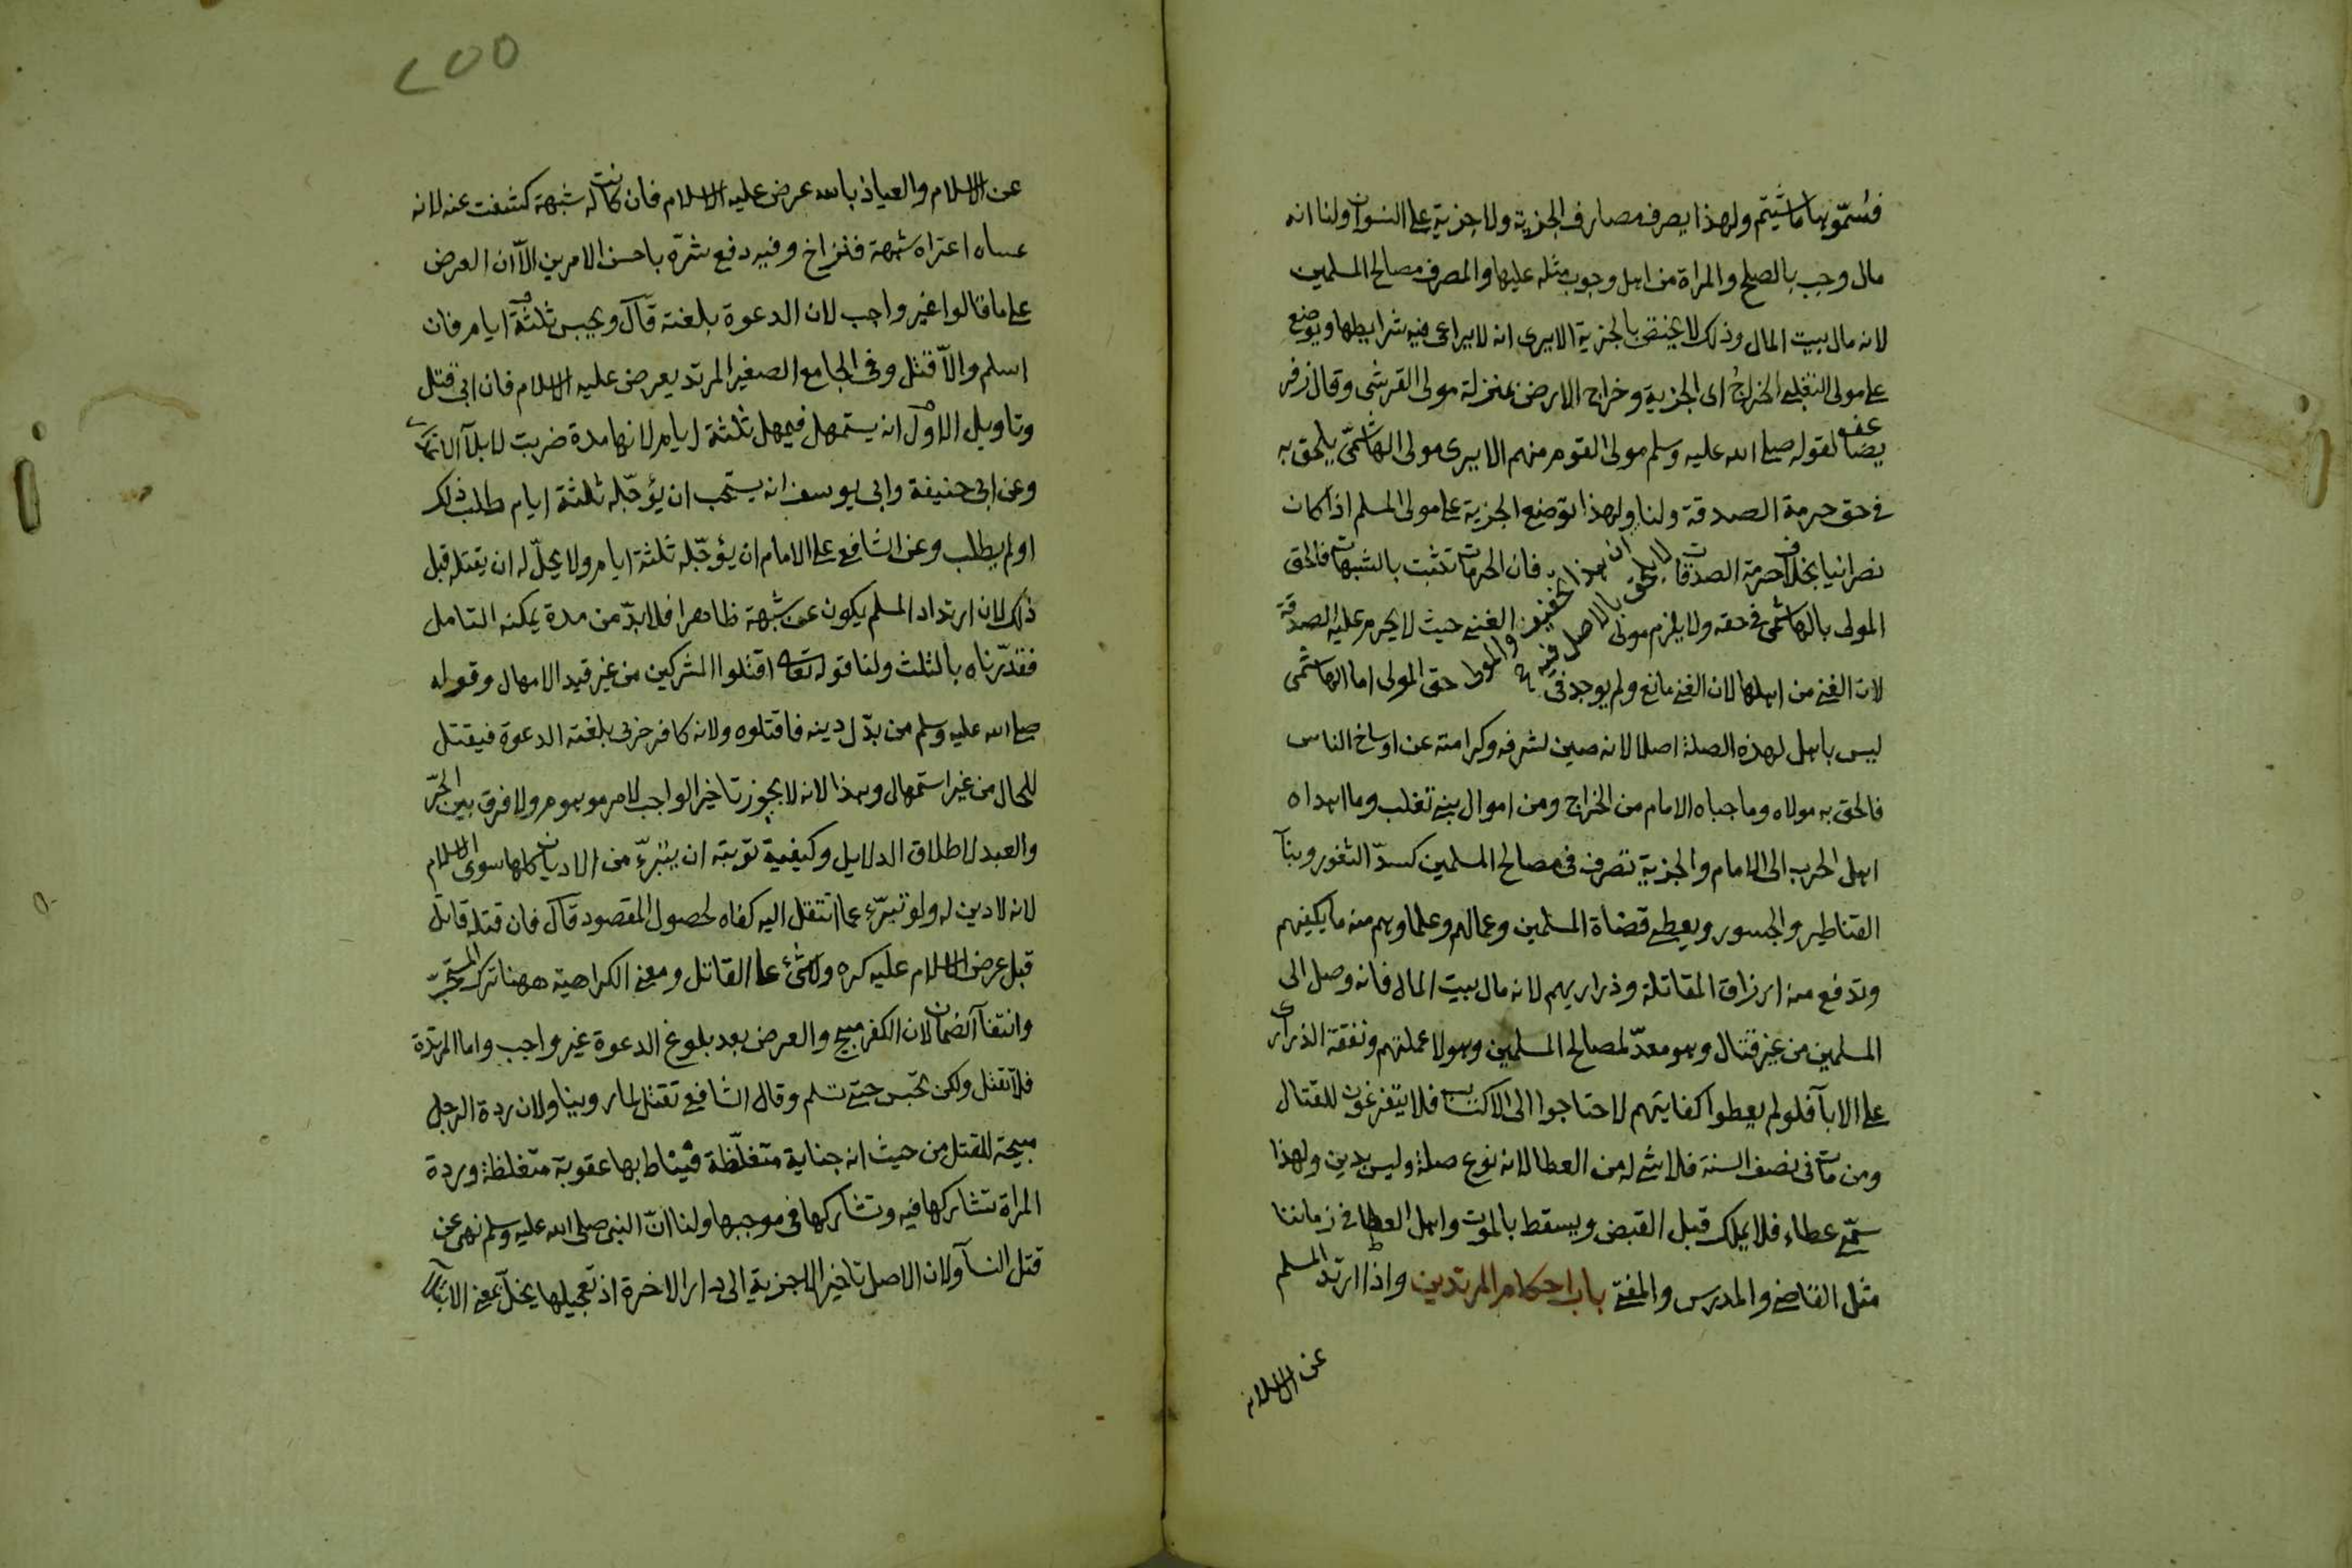 فسموها ما شيتم ولهذا يصرف مصارف الجزية ولا جزية على النسوان ولنا انه
مال وجب بالصلح والمراة من اهل وجوب مثله عليها والمصرف مصالح المسلمين
لانه مال بيت المال وذلك لا يختص بالجزية الا يرى انه لا يراعى فيه شرايطها ويوضع
على مولى التغلبى الخراج اى الجزية وخراج الارض بمنزلة مولى القرشى وقال زفر
يضاعف لقوله صلى الله عليه وسلم مولى القوم منهم الا يرى مولى الهاشمىّ يلحق به
فى حق حرمة الصدقة ولنا ان هذا تخفيف والمولى لا يلحق بالاصل فيه ولهذا توضع الجزية على مولى المسلم اذا كان
نصرانيا بخلاف حرمة الصدقات فان الحرمات تثبت بالشبهات فالحق
المولى بالهاشمى فى حقه ولا يلزم مولى الغنى حيث لا يحرم عليه الصدقة
لان الغنى من اهلها لان الغنى مانع ولم يوجد فى حق المولى اما الهاشمى
ليس باهل لهذه الصلة اصلا لانه صين لشرفه وكرامته عن اوساخ الناس
فالحق به مولاه وما جباه الامام من الخراج ومن اموال بنى تغلب وما اهداه
اهل الحرب الى الامام والجزية تصرف فى مصالح المسلمين كسدّ الثغور وبنآ
القناطير والجسور ويعطى قضاة المسلمين وعمالهم وعلماوهم منه ما يكفيهم
وتدفع منه ارزاق المقاتلة وذراريهم لانه مال بيت المال فانه وصل الى
المسلمين من غير قتال وهو معدّ لمصالح المسلمين وهولا عملتهم ونفقة الذرارى
على الابآ فلو لم يعطوا كفايتهم لاحتاجوا الى الاكتساب فلا يتفرغون للقتال
ومن مات فى نصف السنة فلا شى له من العطا لانه نوع صلة وليس بدين ولهذا
سمّى عطاء فلا يملك قبل القبض ويسقط بالموت واهل العطا فى زماننا
مثل القاضى والمدرس والمفتى باب احكام المرتدين واذا ارتد المسلم
عن الاسلام
٢٥٥
عن الاسلام والعياذ بالله عرض عليه الاسلام فان كانت له شبهة كشفت عنه لانه
عساه اعتراه شبهة فتزاح وفيه دفع شرّه باحسن الامرين الّا ان العرض
على ما قالوا غير واجب لان الدعوة بلغته قال ويحبس ثلثة ايام فان
اسلم والّا قتل وفى الجامع الصغير المرتد يعرض عليه الاسلام فان ابى قتل
وتاويل الاول انه يستمهل فيمهل ثلثة ايام لانها مدة ضربت لابلآ الاعذار
وعن ابى حنيفة وابى يوسف انه يستحب ان يؤجّله ثلثة ايام طلب ذلك
او لم يطلب وعن الشافعى على الامام ان يؤجّله ثلثة ايام ولا يحلّ له ان يقتله قبل
ذلك لان ارتداد المسلم يكون عن شبهة ظاهرا فلا بدّ من مدة يمكنه التامل
فقدّرناه بالثلث ولنا قوله تعالى اقتلوا المشركين من غير قيد الامهال وقوله
صلى الله عليه وسلم من بدّل دينه فاقتلوه ولانه كافر حربى بلغته الدعوة فيقتل
للحال من غير استمهال وهذا لانه لا يجوز تاخير الواجب لامر موهوم ولا فرق بين الحرّ
والعبد لاطلاق الدلايل وكيفية توبته ان يتبرّء من الاديان كلها سوى الاسلام
لانه لا دين له ولو تبرّء عما انتقل اليه كفاه لحصول المقصود قال فان قتله قاتل
قبل عرض الاسلام عليه كره ولا شئ على القاتل ومعنى الكراهية ههنا ترك المستحبّ
وانتفآ الضمان لان الكفر مبيح والعرض بعد بلوغ الدعوة غير واجب واما المرتدة
فلا تقتل ولكن تحبس حتى تسلم وقال الشافعى تقتل لما روينا ولان ردة الرجل
مبيحة للقتل من حيث انه جناية متغلّظة فيناط بها عقوبة متغلظة وردة
المراة تشاركها فيه وتشاركها فى موجبها ولنا انّ النبى صلى الله عليه وسلم نهى عن
قتل النسآ ولان الاصل تاخير الاجزية الى دار الاخرة اذ تعجيلها يخلّ بمعنى الابتلآ